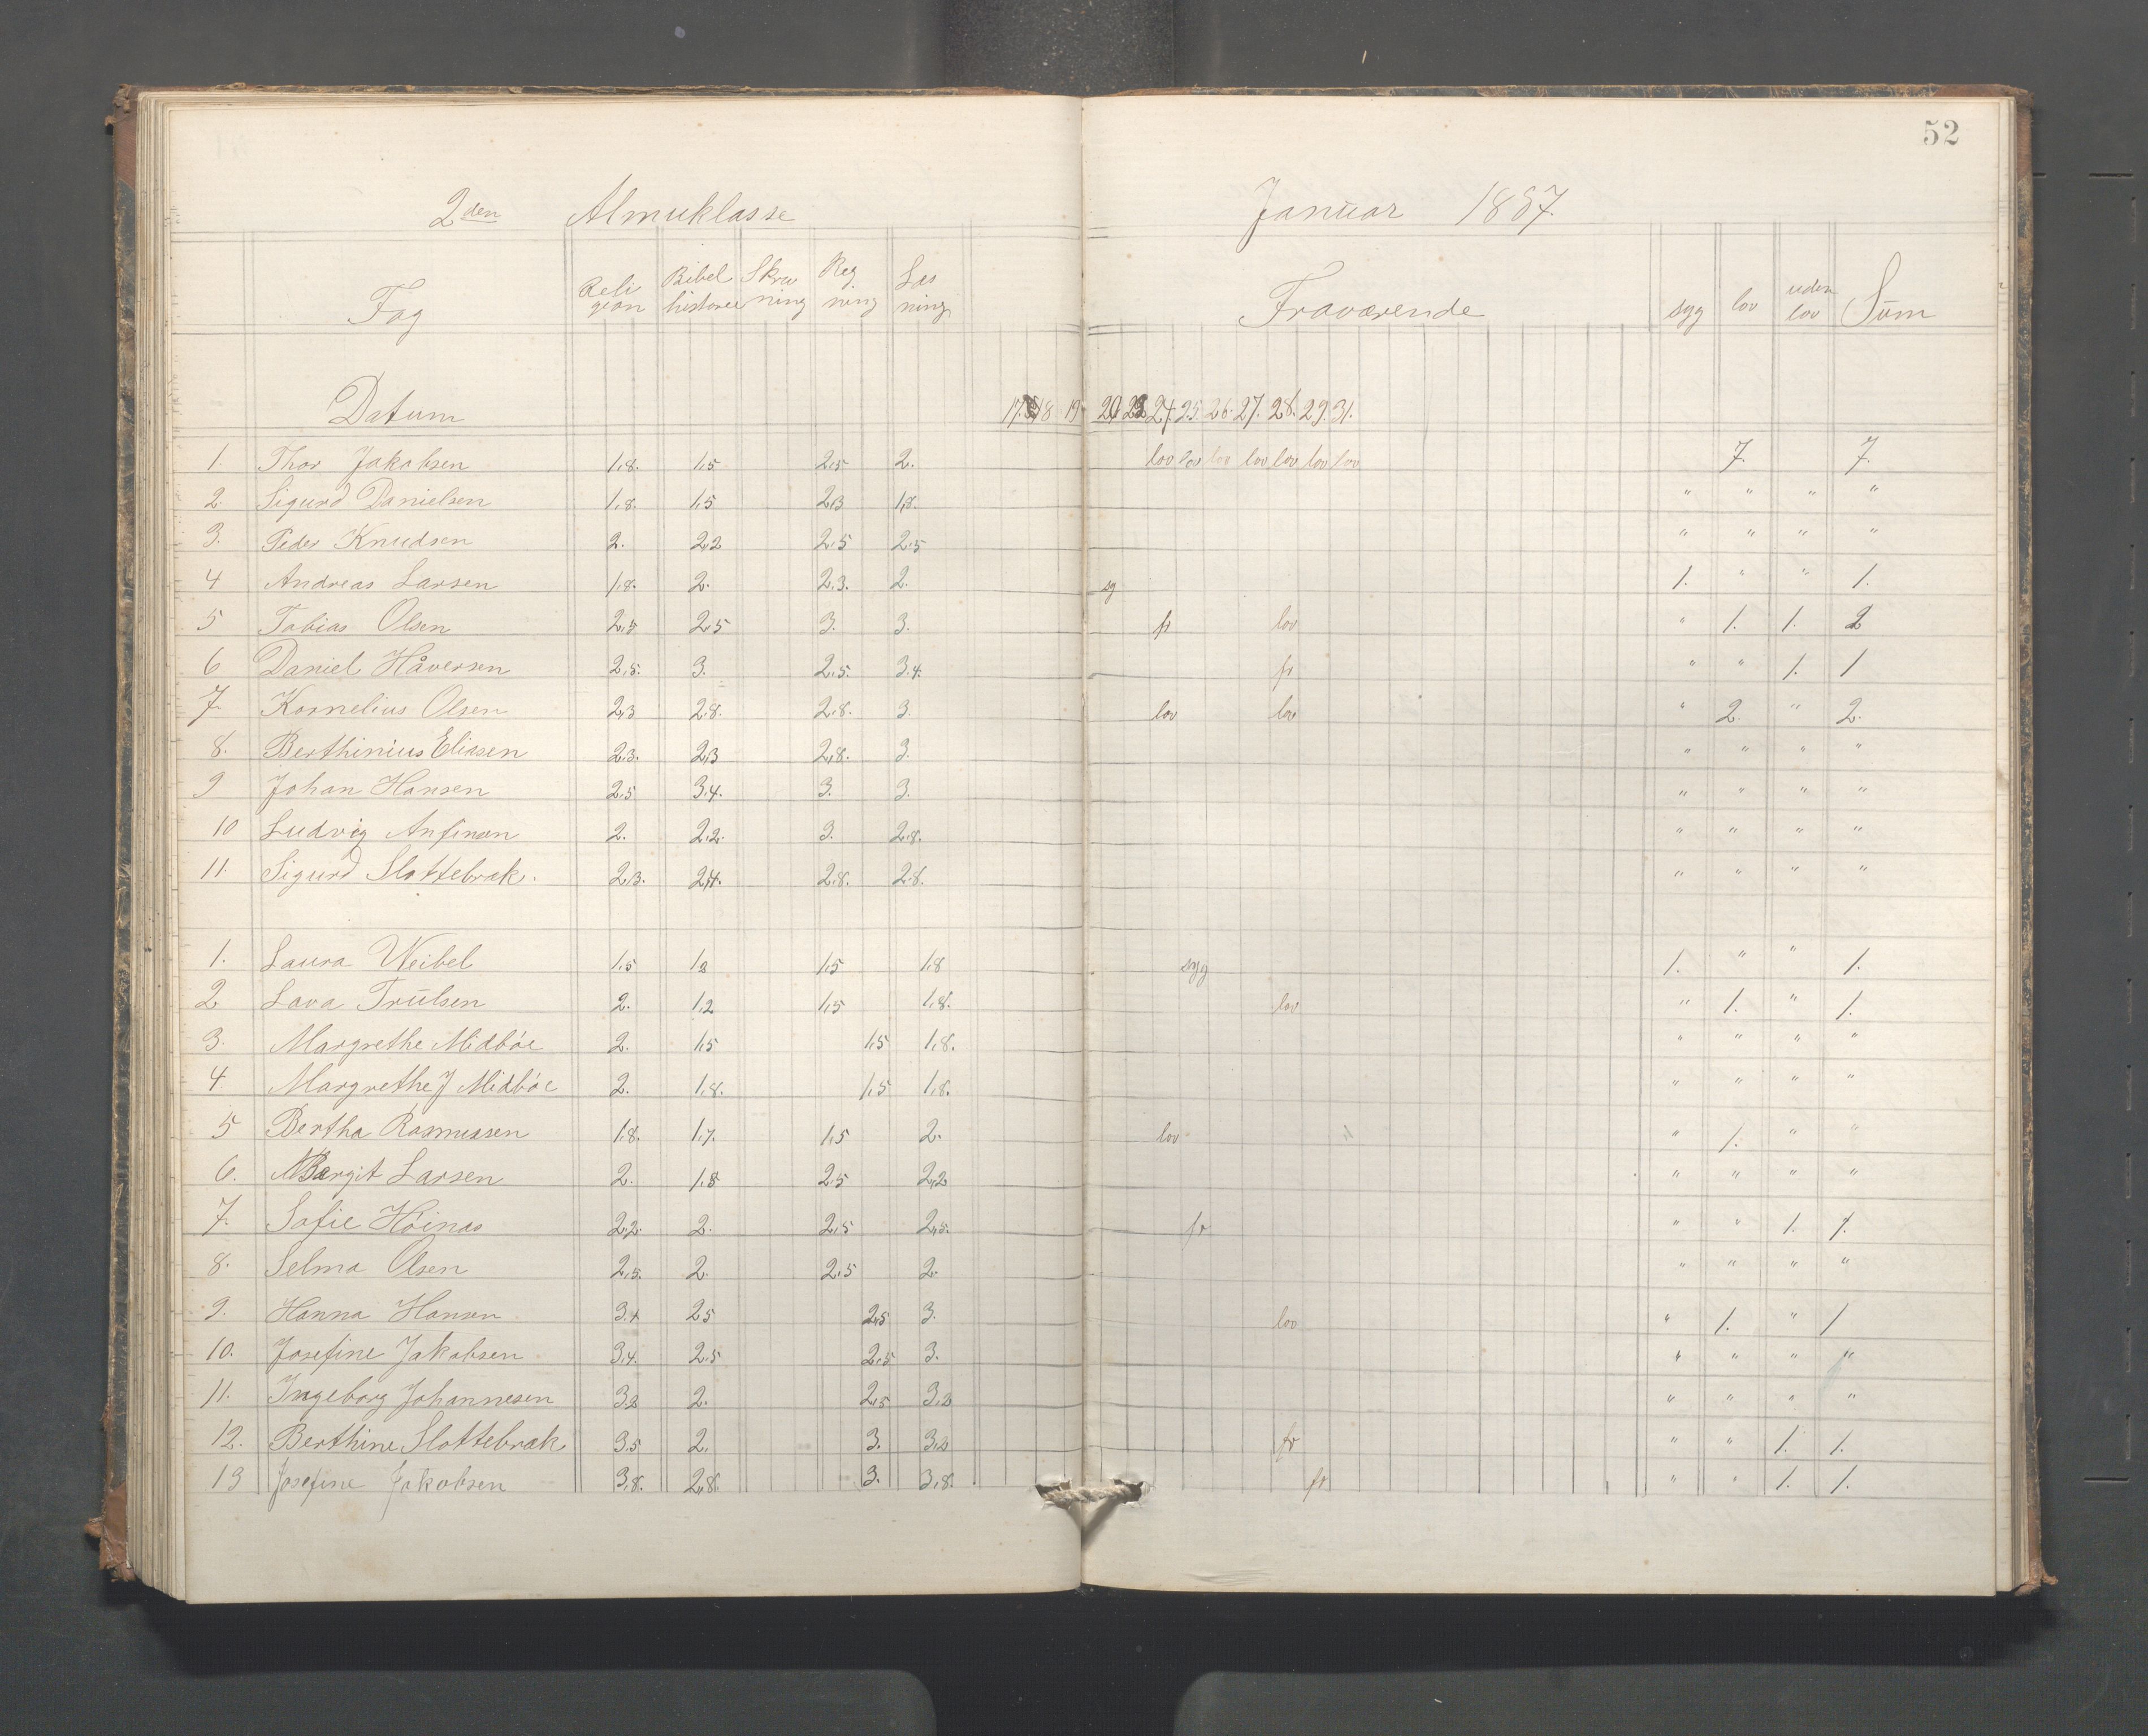 52
2den Almuklasse Januar 1887.
Fag Religion Bibelhistorie Skrivning Regning Læsning Fraværende syg lov uden lov Sum
Datum 17. 18 19 20 22 24. 25. 26. 27. 28. 29. 31.
1. Thor Jakobsen 1,8. 1,5 2,5 2. lov lov lov lov lov lov lov 7. 7.
2. Sigurd Danielsen 1,8. 1,5 2,3 1,8. " " " "
3. Peder Knudsen 2. 2,2 2,5 2,5 " " " "
4 Andreas Larsen 1,8. 2. 2,3. 2. sg 1. " " 1.
5 Tobias Olsen 2,5 2,5 3. 3. fr lov " 1. 1. 2
6 Daniel Håversen 2,5. 3. 2,5. 3.4. fr " " 1. 1
7. Kornelius Olsen 2,3 2,8. 2,8. 3. lov lov " 2. " 2.
8. Berthinius Eliasen 2,3. 2,3 2,8. 3. " " " "
9 Johan Hansen 2,5 3,4. 3. 3. " " " "
10 Ludvig Anfinsen 2. 2,2. 3. 2,8. " " " "
11. Sigurd Slottebrak. 2,3. 2,4. 2,8. 2,8. " " " "
1. Laura Weibel 1,5 1,2 1,5 1,8 syg 1. " " 1.
2 Lava Trulsen 2. 1,2 1,5 1,8. lov " 1. " 1.
3. Margrethe Midbøe 2. 1,5 1,5 1,8. " " " "
4 Margrethe J Midbøe 2. 1,8. 1,5 1,8. " " " "
5 Bertha Rasmussen 1,8. 1,7. 1,5 2. lov " 1. " "
6. Bergit Larsen 2. 1,8 2,5 2,2 " " " "
7. Sofie Høinas 2,2. 2. 2,5 2,5. fr " " 1. 1.
8. Selma Olsen 2,5. 2. 2,5 2. " " " "
9. Hanna Hansen 3.4 2,5 2,5 3. lov " 1. " 1
10. Josefine Jakobsen 3,4. 2,5 2,5 3. " " " "
11. Ingeborg Johannesen 3,2 2. 2,5 3,2 " " " "
12. Berthine Slottebrak 3,5 2. 3. 3,2 fr " " 1. 1.
13 Josefine Jakobsen 3,8. 2,8. 3. 3,8. fr " " 1. 1.